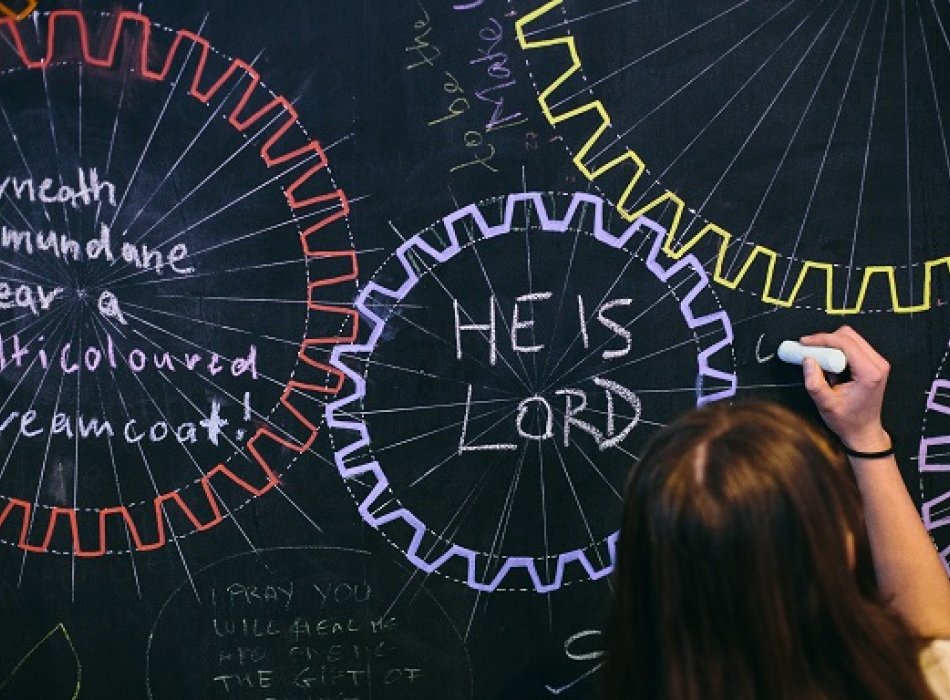 yneath
mundane
ear a
lticoloured
reamcoat!
to be the
Make
HE IS
LORD
I PRAY YOU
WILL HEAL ME
AND GIVE ME
THE GIFT OF